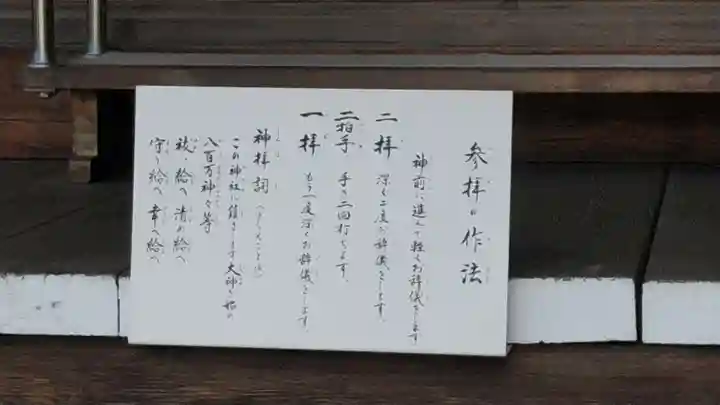 参拝の作法
神前に進んで軽くお辞儀をします
二拝 深く二度お辞儀をします。
二拍手 手を二回打ちます。
一拝 もう一度深くお辞儀をします。
神拝詞
この神社に鎮ります大神を始め
八百万神々等
祓へ給へ清め給へ
守り給へ幸へ給へ